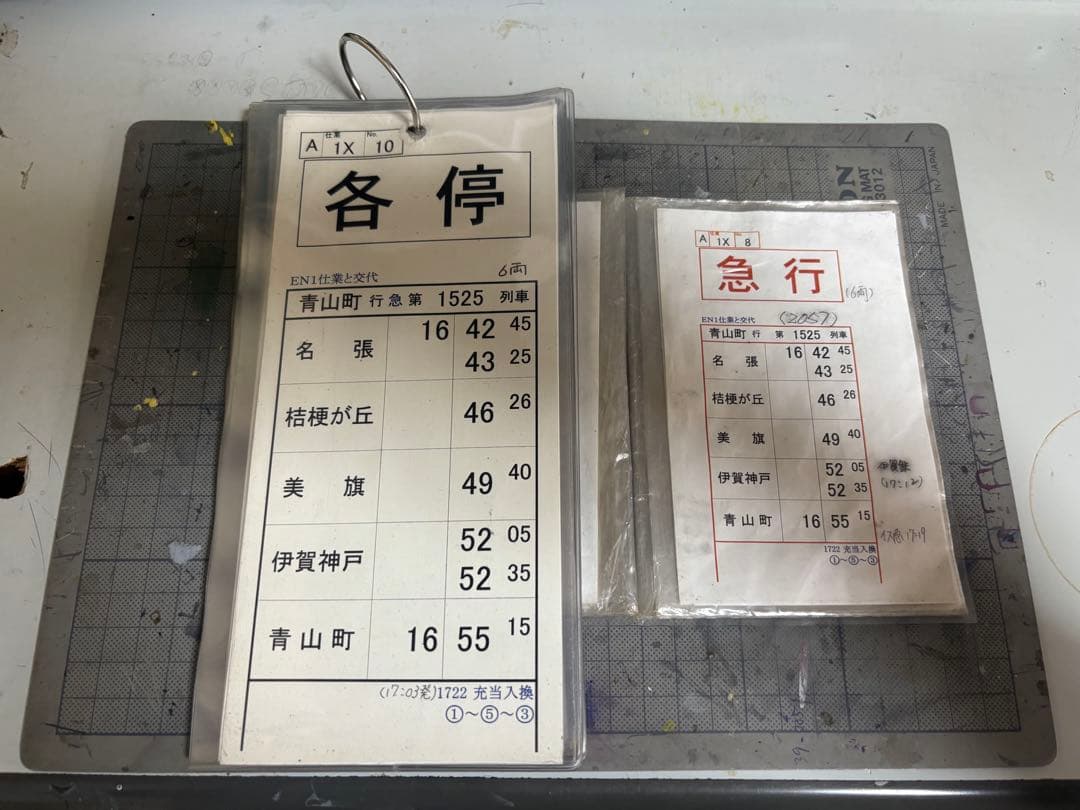 A 仕業 1X No. 10
各停
EN1仕業と交代 6両
青山町 行 急 第 1525 列車
名張 16 42 45
43 25
桔梗が丘 46 26
美旗 49 40
伊賀神戸 52 05
52 35
青山町 16 55 15
(17:03発)1722 充当入換
①～⑤～③
A 仕業 1X No. 8
急行
(6両)
EN1仕業と交代 (2057)
青山町 行 第 1525 列車
名張 16 42 45
43 25
桔梗が丘 46 26
美旗 49 40
伊賀神戸 52 05
52 35
(17:12)
青山町 16 55 15
17:19
1722 充当入換
①～⑤～③
MAT
3012
MADE IN JAPAN